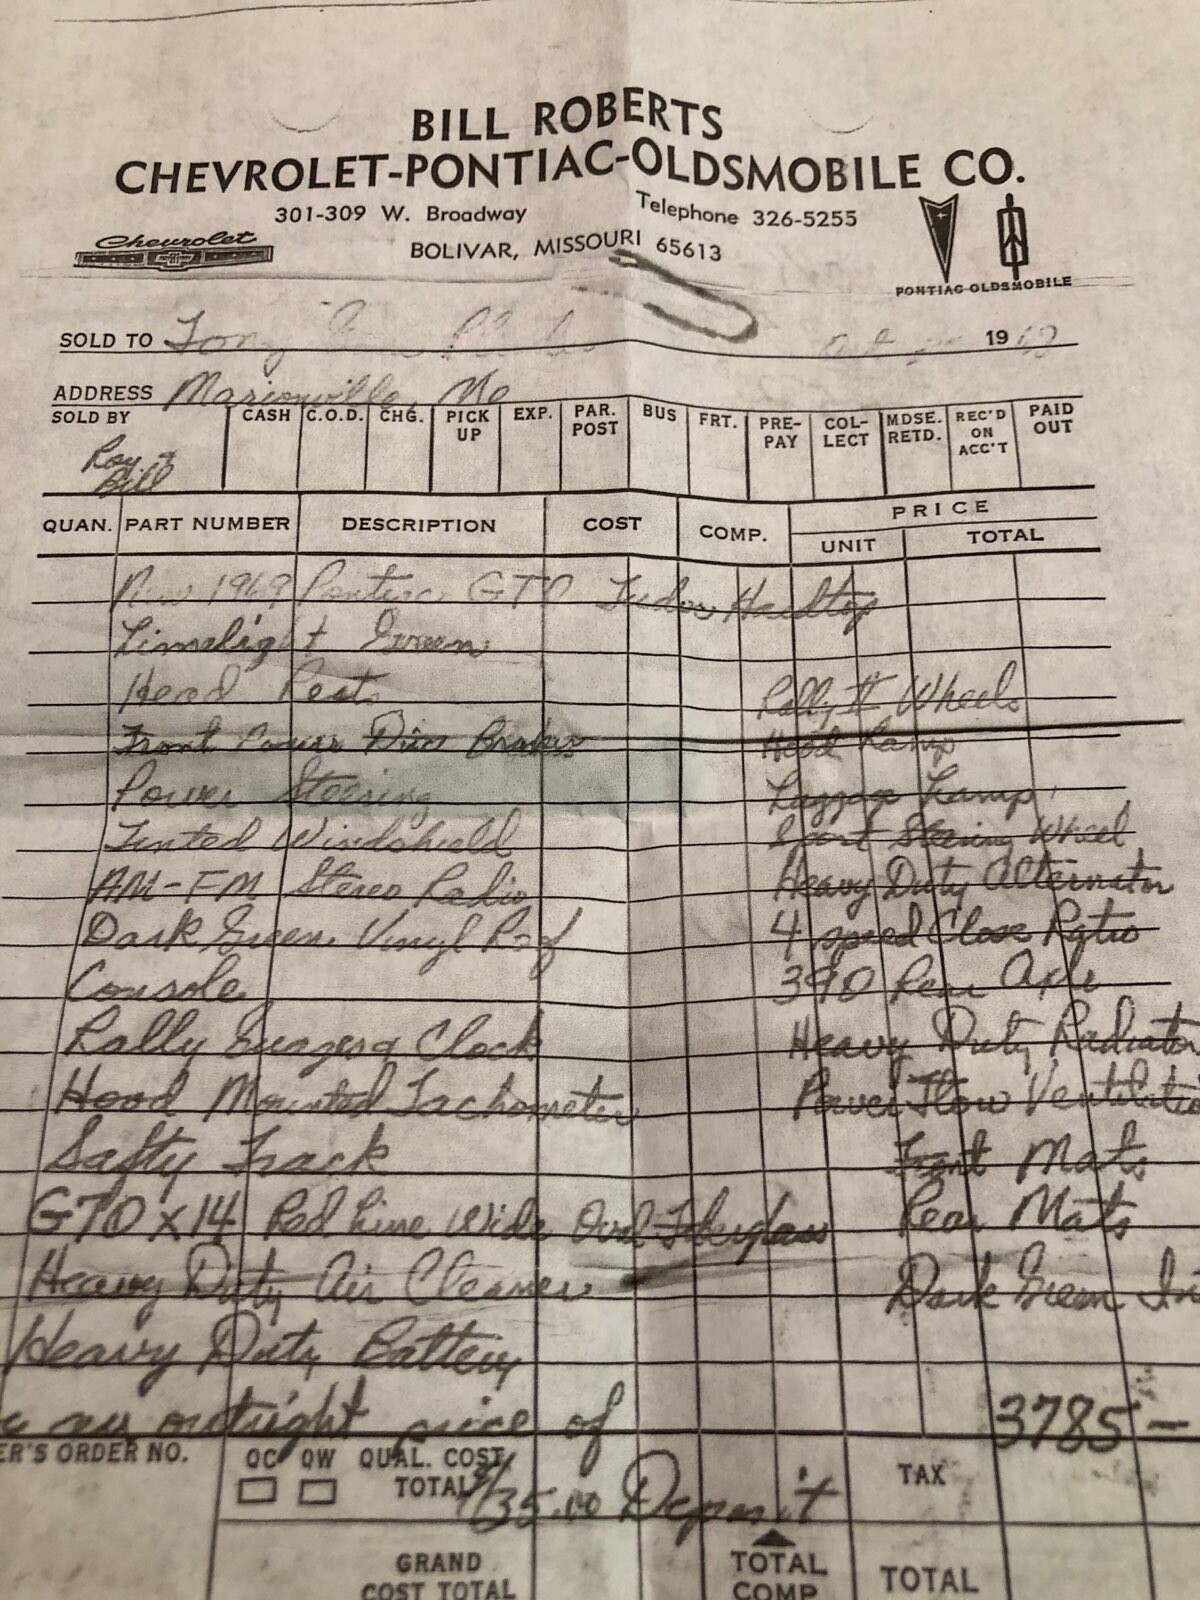 BILL ROBERTS
CHEVROLET-PONTIAC-OLDSMOBILE CO.
301-309 W. Broadway Telephone 326-5255
Chevrolet BOLIVAR, MISSOURI 65613
PONTIAC-OLDSMOBILE
SOLD TO Tony 19
ADDRESS Marionville, Mo
SOLD BY CASH C.O.D. CHG. PICK UP EXP. PAR. POST BUS FRT. PRE-PAY COL-LECT MDSE. RETD. REC'D ON ACC'T PAID OUT
Roy &
Bill
QUAN. PART NUMBER DESCRIPTION COST COMP. PRICE
UNIT TOTAL
New 1969 Pontiac GTO Tudor Hardtop
Limelight Green
Head Rests Rally II Wheels
Front Power Disc Brakes Hood Lamp
Power Steering Luggage Lamp
Tinted Windshield Sport Steering Wheel
AM-FM Stereo Radio Heavy Duty Alternator
Dark Green Vinyl Roof 4 speed Close Ratio
Console 390 Rear Axle
Rally Guages & Clock Heavy Duty Radiator
Hood Mounted Tachometer Power Flow Ventilatio
Safty Track Front Mats
G70 x 14 Red Line Wide Oval Fiberglass Rear Mats
Heavy Duty Air Cleaner Dark Green In
Heavy Duty Battery
outright price of 3785-
ER'S ORDER NO. QC QW QUAL. COST TOTAL TAX
35.00 Deposit
GRAND COST TOTAL TOTAL COMP TOTAL